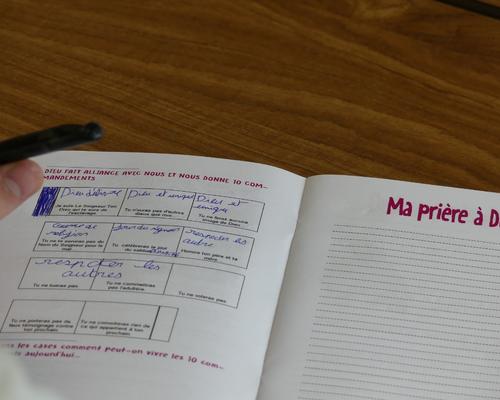 DIEU FAIT ALLIANCE AVEC NOUS ET NOUS DONNE 10 COM...
MANDEMENTS
Dieu délivre Dieu est unique Dieu est
unique
Je suis Le Seigneur Ton
Dieu qui te sors de
l'esclavage.
Tu n'auras pas d'autres
dieux que moi.
Tu ne feras aucune
image de Dieu.
religion
jour du signeur
respecter les
autre
Tu ne te serviras pas du
Nom du Seigneur pour le
mal.
Tu célèbreras le jour
du
Honore ton père et ta
mère.
respecter les
autres
Tu ne tueras pas.
Tu ne commettras
pas l'adultère.
Tu ne voleras pas.
Tu ne porteras pas de
faux témoignage contre
ton prochain.
Tu ne convoiteras rien de
ce qui appartient à ton
prochain.
les cases comment peut-on vivre les 10 com...
aujourd'hui...
Ma prière à D